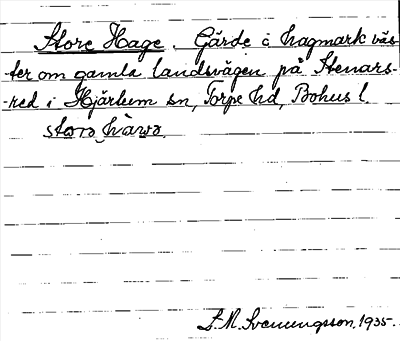 Store Hage. Gärde å hagmark väs-
ter om gamla landsvägen på Stenars-
-red i Hjärtum sn, Torpe hd, Bohus l.
storə hàwə.
S.M. Svenungsson. 1935.